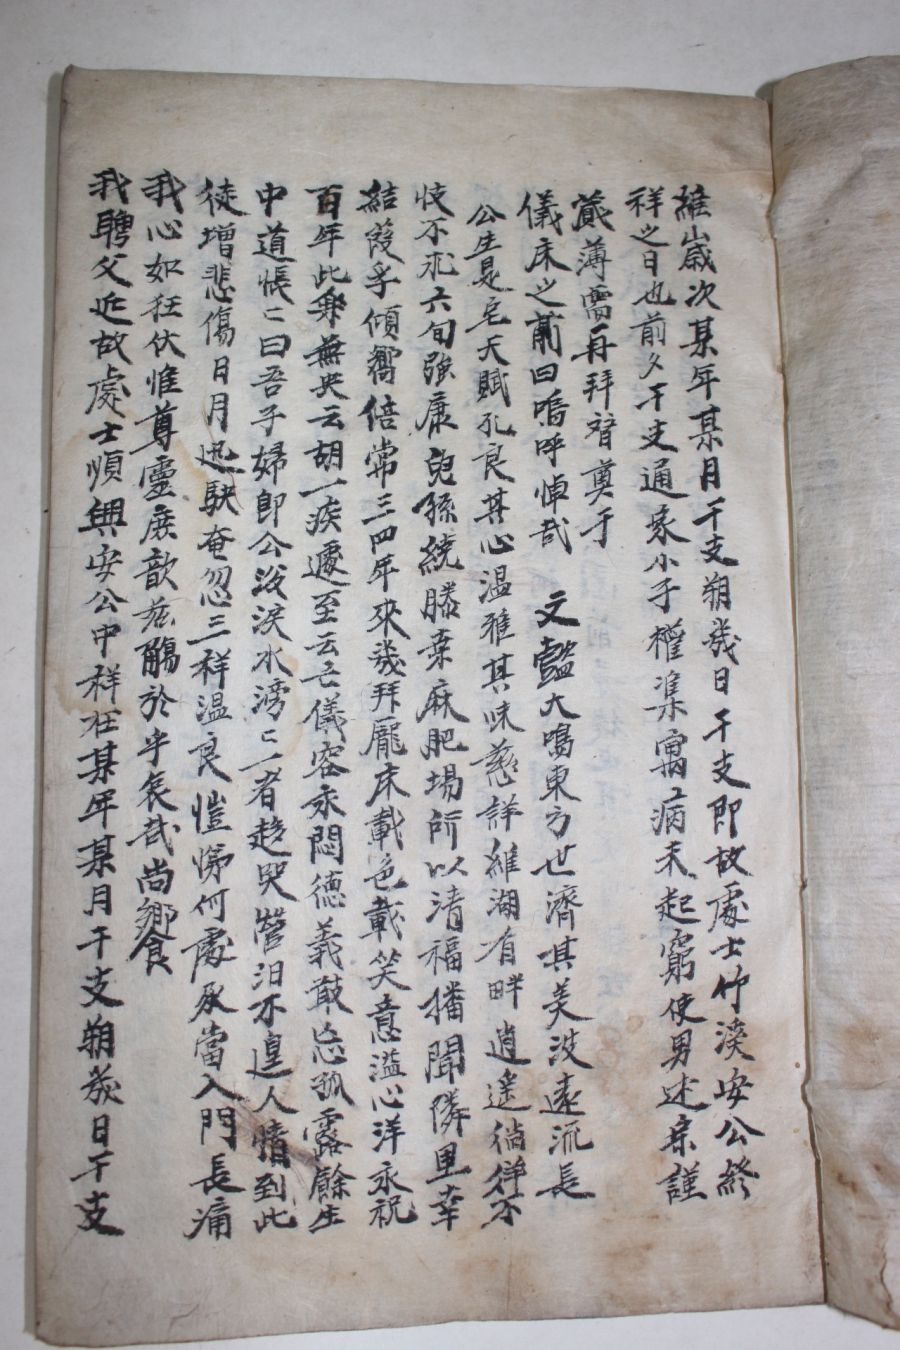 維歲次某年某月干支朔幾日干支即故處士竹溪安公終
祥之日也前夕干支通家小子權集窩病未起窮使男述宗謹
薄需再拜替奠于
儀床之前曰嗚呼悼哉 文懿大鳴東方世濟其美波遠流長
公生是宅天賦孔良其心溫雅其味慈詳維湖有畔逍遙徜徉不
忮不求六旬強康兒孫繞膝桑麻肥場所以清福播聞隣里幸
結葭孚傾嚮倍常三四年來幾拜龎床載色載笑意溢心洋永祝
百年此樂無央云胡一疾遽至云亡儀容永閟德義敢忘孤露餘生
中道悵〻曰吾子婦即公淑淚水滂〻二者趍哭營汩不遑人情到此
徒增悲傷日月迅駃奄忽三祥溫良愷悌何處承當入門長痛
我心如狂伏惟尊靈庶歆玆觴於乎哀哉尚饗
我聘父近故處士順興安公中祥在某年某月干支朔幾日干支